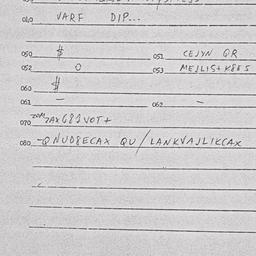 010 VARF DIP...
050 $ 051 CEJYN QR
052 0 053 MEJLIS+K8E5
060 $
061 - 062 -
070
080 -QNUD8ECAX QU/LANKVAJLIKCAX